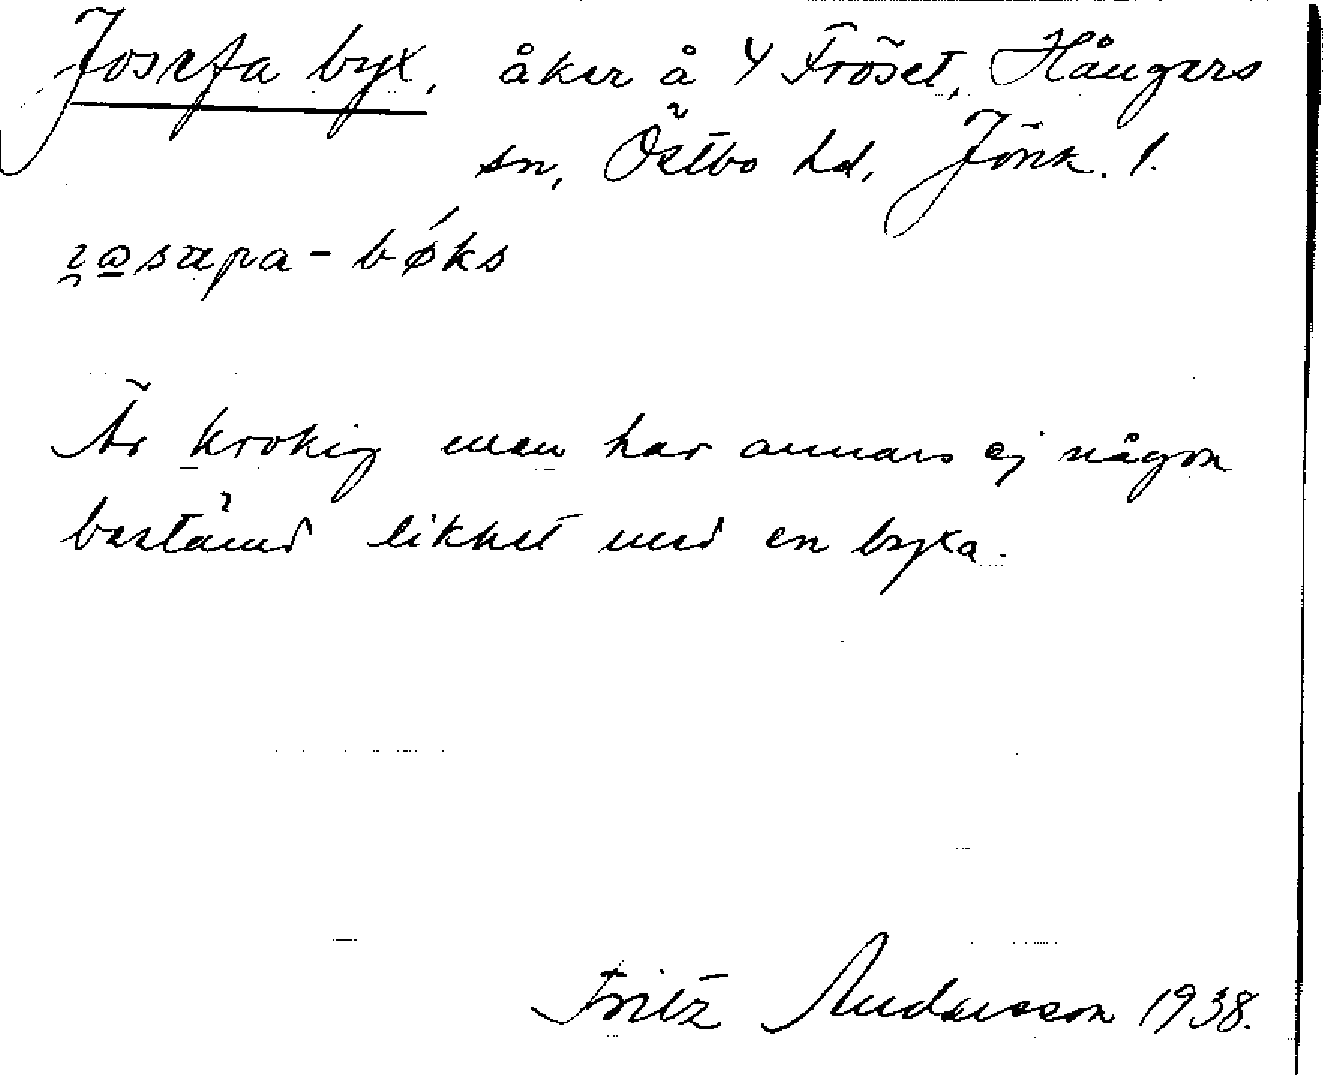 Josefa byx, åker å 4 Fröset, Hångers
sn, Östbo hd, Jönk. l.
Är krokig men har annars ej någon
bestämd likhet med en byxa.
Fritz Andersson 1938.